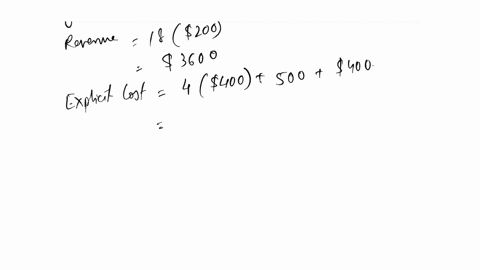 Revenue = 18 ($200)
= $3600
Explicit Cost = 4 ($400) + 500 + $400
=